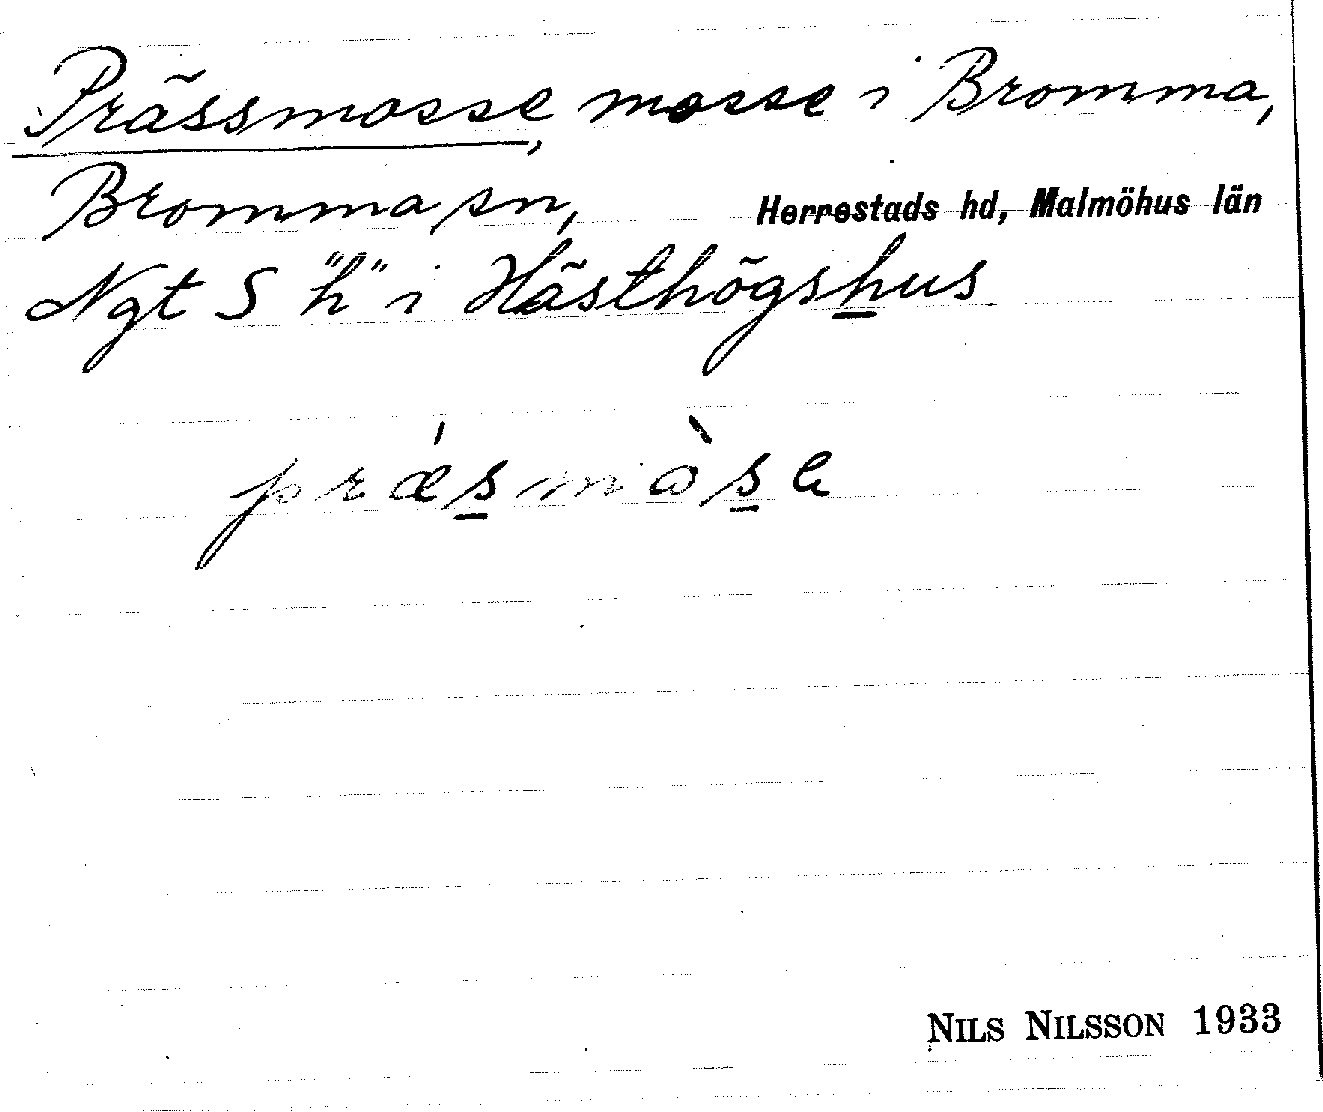 Prässmosse, mosse i Bromma,
Bromma sn, Herrestads hd, Malmöhus län
Ngt S "h" i Hästhögshus
præ´smò̀sa
NILS NILSSON 1933